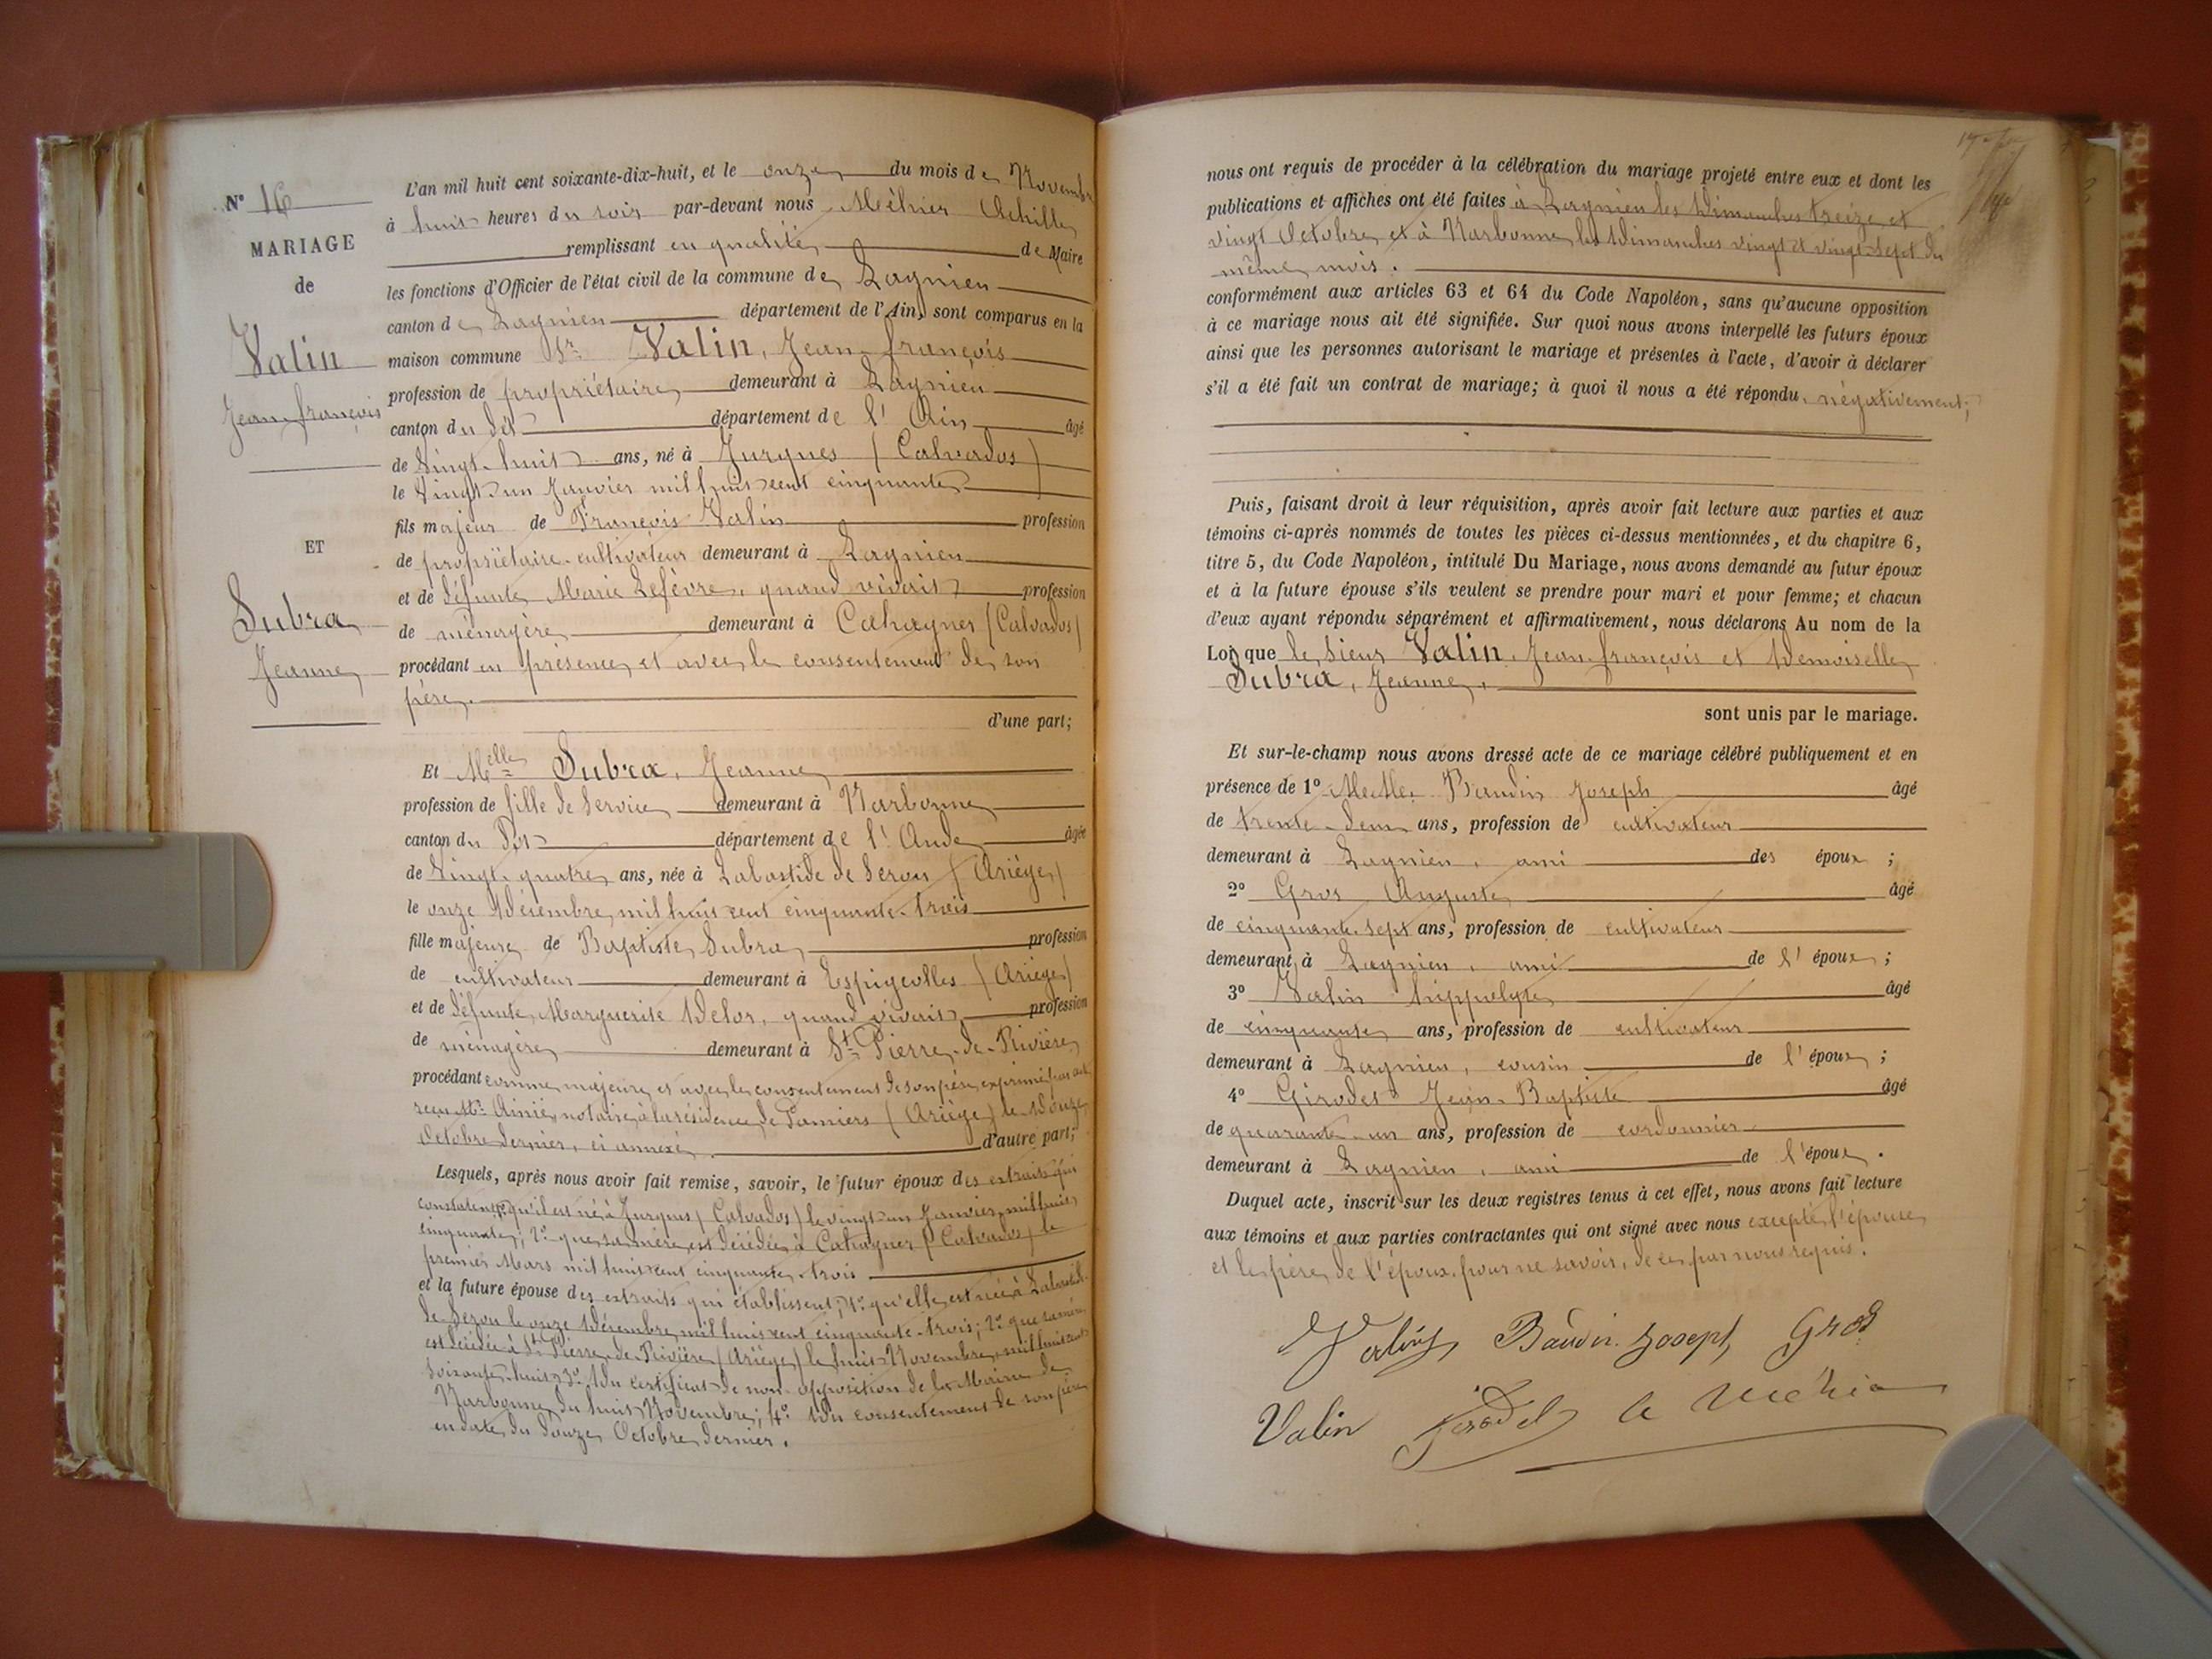 N° 16
MARIAGE
de
Valin
Jean-françois
ET
Subra
Jeanne
L'an mil huit cent soixante-dix-huit, et le onze du mois de Novembre
à huit heures du soir par-devant nous Méhier Achille
remplissant en qualité de Maire
les fonctions d'Officier de l'état civil de la commune de Lagnieu
canton de Lagnieu département de l'Ain, sont comparus en la
maison commune Sr Valin, Jean-françois
profession de propriétaire demeurant à Lagnieu
canton du dit département de l'Ain âgé
de Vingt-huit ans, né à Jurques (Calvados)
le Vingt-un Janvier mil huit cent cinquante
fils majeur de François Valin profession
de propriétaire-cultivateur demeurant à Lagnieu
et de défunte Marie Lefèvre, quand vivait profession
de ménagère demeurant à Cahagnes (Calvados)
procédant en présence et avec le consentement de son
père.
d'une part;
Et Melle Subra, Jeanne
profession de fille de Service demeurant à Narbonne
canton du dit département de l'Aude âgée
de Vingt-quatre ans, née à Labastide de Serou (Ariége)
le onze Décembre mil huit cent cinquante-trois
fille majeure de Baptiste Subra profession
de cultivateur demeurant à Espigeolles (Ariége)
et de défunte Marguerite Delor, quand vivait profession
de ménagère demeurant à St Pierre-de-Rivière
procédant comme majeure et avec le consentement de son père exprimé par acte
reçu Me notaire à la résidence de Pamiers (Ariége) le Douze
Octobre dernier, ci annexé d'autre part;
Lesquels, après nous avoir fait remise, savoir, le futur époux des extraits qui
constatent 1° qu'il est né à Jurques (Calvados) le vingt-un Janvier mil huit
cinquante; 2° que sa mère est décédée à Cahagnes (Calvados) le
premier Mars mil huit cent cinquante-trois
et la future épouse des extraits qui établissent, 1° qu'elle est née à Labastide
de Serou le onze Décembre mil huit cent cinquante-trois; 2° que sa mère
est décédée à St Pierre-de-Rivière (Ariége) le huit Novembre mil huit cent
soixante-huit; 3° Du certificat de non opposition de la Mairie de
Narbonne du huit Novembre; 4° Du consentement de son père
en date du douze Octobre dernier.
nous ont requis de procéder à la célébration du mariage projeté entre eux et dont les
publications et affiches ont été faites à Lagnieu les Dimanches treize et
vingt Octobre et à Narbonne les Dimanches vingt et vingt-sept du
même mois.
conformément aux articles 63 et 64 du Code Napoléon, sans qu'aucune opposition
à ce mariage nous ait été signifiée. Sur quoi nous avons interpellé les futurs époux
ainsi que les personnes autorisant le mariage et présentes à l'acte, d'avoir à déclarer
s'il a été fait un contrat de mariage; à quoi il nous a été répondu négativement;
Puis, faisant droit à leur réquisition, après avoir fait lecture aux parties et aux
témoins ci-après nommés de toutes les pièces ci-dessus mentionnées, et du chapitre 6,
titre 5, du Code Napoléon, intitulé Du Mariage, nous avons demandé au futur époux
et à la future épouse s'ils veulent se prendre pour mari et pour femme; et chacun
d'eux ayant répondu séparément et affirmativement, nous déclarons Au nom de la
Loi que le Sieur Valin, Jean-françois et Demoiselle
Subra, Jeanne,
sont unis par le mariage.
Et sur-le-champ nous avons dressé acte de ce mariage célébré publiquement et en
présence de 1° Baudin Joseph âgé
de trente-deux ans, profession de cultivateur
demeurant à Lagnieu, ami des époux;
2° Gros Auguste âgé
de cinquante-sept ans, profession de cultivateur
demeurant à Lagnieu, ami de l'époux;
3° Valin hippolyte âgé
de cinquante ans, profession de cultivateur
demeurant à Lagnieu, cousin de l'époux;
4° Girodet Jean-Baptiste âgé
de quarante-un ans, profession de cordonnier
demeurant à Lagnieu, ami de l'époux.
Duquel acte, inscrit sur les deux registres tenus à cet effet, nous avons fait lecture
aux témoins et aux parties contractantes qui ont signé avec nous excepté l'épouse
et le père de l'époux pour ne savoir, de ce par nous requis.
Valin Baudin Joseph Gros
Valin Girodet A Méhier